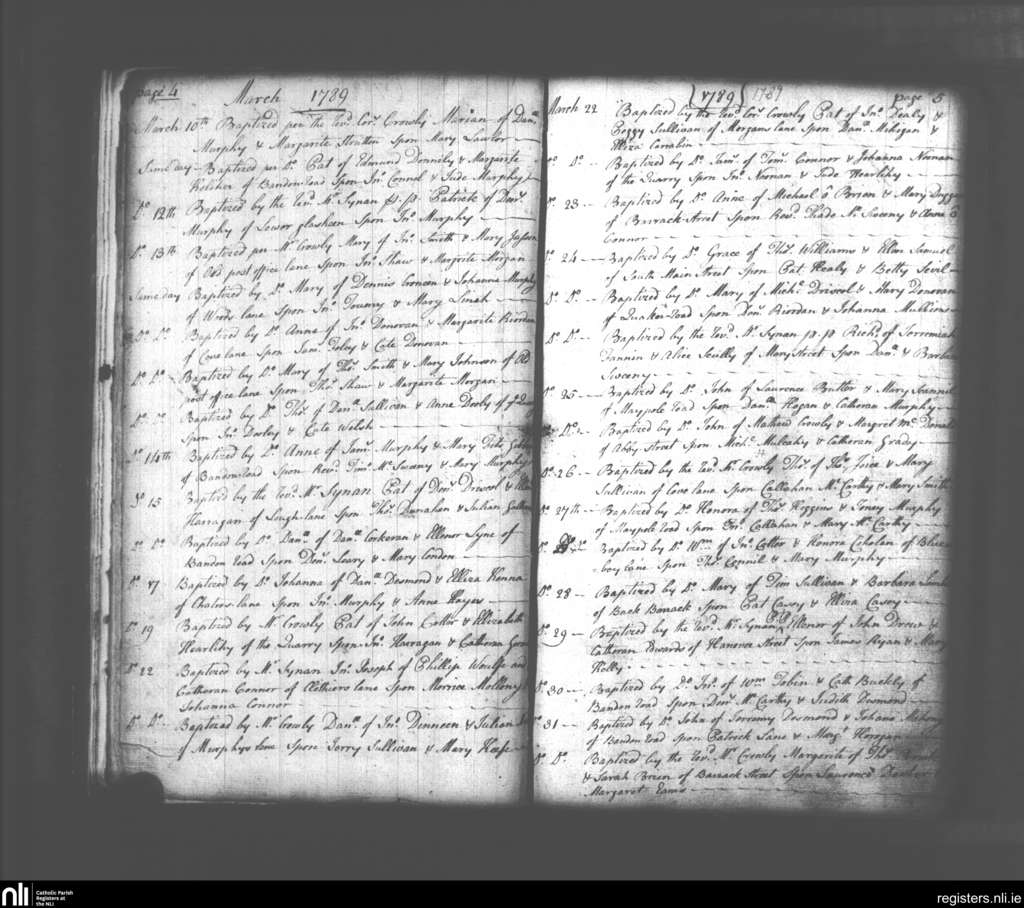 page 4
March 1789
March 10th Baptized per the Revd Cors Crowly Marian of Danll
Murphy & Margarite Stratton Spon Mary Lawlor
Same day Baptized per Do Pat of Edmund Donnily & Margarite
Kelleher of Bandon road Spon Jno Connel & Jude Murphy
Do 12th Baptized by the Revd Mr Synan p:p: Patrick of Danl
Murphy of Lower glasheen Spon Jno Murphy
Do 13th Baptized per Mr Crowly Mary of Jno Smith & Mary
of Old post office lane Spon Jno Shaw & Margarite Morgan
Same day Baptized by Do Mary of Dennis Croneen & Johanna Murphy
of Woods lane Spon Jno Toumy & Mary Linah
Do Do Baptized by Do Anne of Jno Donovan & Margarite Riordan
of Cove lane Spon Jams Foley & Cate Donovan
Do Do Baptized by Do Mary of Thos Smith & Mary Johnson of Old
post office lane Spon Thos Shaw & Margarite Morgan
Do Do Baptized by Do Thos of Danll Sullivan & Anne Dooley of ye
Spon Jno Dooley & Cate Welsh
Do 14th Baptized by Do Anne of Jams Murphy & Mary Fitz
of Bandon road Spon Revd Timo Mc Sweeny & Mary Murphy
Do 15 Baptized by the Revd Mr Synan Pat of Denis Driscol & Ellen
Harragan of Lough lane Spon Thos Dunahan & Julian
Do Do Baptized by Do Danll of Danll Corkeran & Ellenor Syne of
Bandon Road Spon Denis Leary & Mary Condon
Do 17 Baptized by Do Johanna of Danll Desmond & Elliza Henna
of Chaters lane Spon Jno Murphy & Anne Hayes
Do 19 Baptized by Mr Crowly Pat of John Cotter & Ellizabeth
Hearlihy of the Quarry Spon Jno Harragan & Catheran
Do 22 Baptized by Mr Synan Jno Joseph of Phillip Woulfe and
Catheran Connor of Clothiers lane Spon Morrice Mollony
Johanna Connor
Do Do Baptized by Mr Crowly Danll of Jno Dinneen & Julian
of Murphys lane Spon Jerry Sullivan & Mary Keefe
1789 1789 page 5
March 22 Baptized by the Revd Cors Crowly Pat of Jno Dealy &
Peggy Sullivan of Morgans lane Spon Danll Mehigan &
Elliza
Do Do Baptized by Do Jams of Tims Connor & Johanna Noonan
of the Quarry Spon Jno Noonan & Jude Hearlihy
Do 23 Baptized by Do Anne of Michael O Brien & Mary
of Barrack Street Spon Revd Thade Mc Sweeny & Anne O
Connor
Do 24 Baptized by Do Grace of Thos Williams & Ellen Samuel
of South Main Street Spon Pat Healy & Betty
Do Do Baptized by Do Mary of Michl Driscol & Mary Donovan
of Quaker road Spon Denis Riordan & Johanna Mullions
Do Do Baptized by the Revd Mr Synan p.p Richd of Jerremiah
Fannin & Alice Scully of Mary Street Spon Danll & Barbara
Sweeny
Do 25 Baptized by Do John of Laurence Butler & Mary Scannel
of Maypole road Spon Danll Hogan & Catheran Murphy
Do Do Baptized by Do John of Mathew Crowly & Margret Mc Donald
of Abby Street Spon Michl Mulcahy & Catheran Grady
Do 26 Baptized by the Revd Mr Crowly Thos of Thos Joice & Mary
Sullivan of Cove lane Spon Callahan Mc Carthy & Mary Smith
Do 27th Baptized by Do Honora of Thos Hoggins & Joney Murphy
of Maypole road Spon Jno Callahan & Mary Mc Carthy
Do Do Baptized by Do Wm of Jno Cotter & Honora Coholan of Blue
boy lane Spon Thos Connil & Mary Murphy
Do 28 Baptized by Do Mary of Tim Sullivan & Barbara
of Back Barrack Spon Pat Casey & Elliza Casey
Do 29 Baptized by the Revd Mr Synan PP Ellenor of John Drew &
Catheran Edwards of Hanover Street Spon James Regan & Mary
Kelly
Do 30 Baptized by Do Jno of Wm Tobin & Cath Buckly of
Bandon road Spon Denis Mc Carthy & Judith Desmond
Do 31 Baptized by Do John of Jerremy Desmond & Johana Mahony
of Bandon road Spon Patrick Lane & Margt Horogan
Do Do Baptized by the Revd Mr Crowly Margarite of Thos
& Sarah Breen of Barrack Street Spon Laurence
Margaret
nli Catholic Parish
Registers at
the NLI
registers.nli.ie